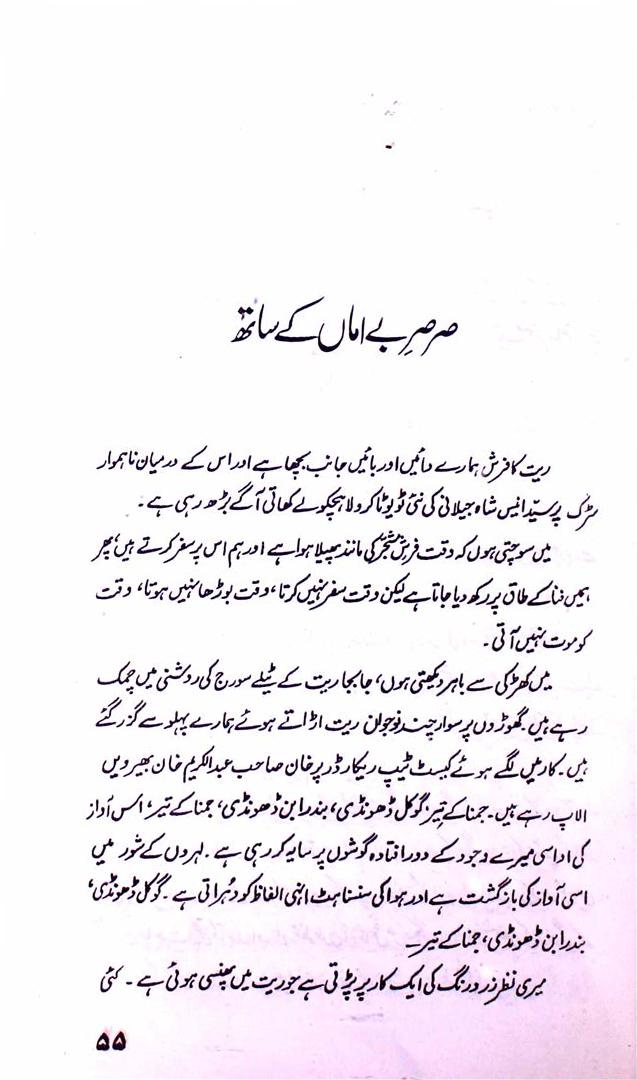 صرصرِ بے اماں کے ساتھ
ریت کا فرش ہمارے دائیں اور بائیں جانب بچھا ہے اور اس کے درمیان ناہموار
سڑک پر سیّد انیس شاہ جیلانی کی نئی ٹویوٹا کرولا ہچکولے کھاتی آگے بڑھ رہی ہے۔
میں سوچتی ہوں کہ وقت فرشِ کی مانند پھیلا ہوا ہے اور ہم اس پر سفر کرتے ہیں، پھر
ہمیں فنا کے طاق پر رکھ دیا جاتا ہے لیکن وقت سفر نہیں کرتا، وقت بوڑھا نہیں ہوتا، وقت
کو موت نہیں آتی۔
میں کھڑکی سے باہر دیکھتی ہوں، جابجا ریت کے ٹیلے سورج کی روشنی میں چمک
رہے ہیں۔ گھوڑوں پر سوار چند نوجوان ریت اڑاتے ہوئے ہمارے پہلو سے گزر گئے
ہیں۔ کار میں لگے ہوئے کیسٹ ٹیپ ریکارڈر پر خان صاحب عبدالکریم خان بھیرویں
الاپ رہے ہیں۔ جمنا کے تیر، گوکل ڈھونڈی، بندرابن ڈھونڈی، جمنا کے تیر، اس آواز
کی اداسی میرے وجود کے دور افتادہ گوشوں پر سایہ کر رہی ہے۔ لہروں کے شور میں
اسی آواز کی بازگشت ہے اور ہوا کی سنسناہٹ انہی الفاظ کو دُہراتی ہے۔ گوکل ڈھونڈی،
بندرابن ڈھونڈی، جمنا کے تیر۔
میری نظر زرد رنگ کی ایک کار پر پڑتی ہے جو ریت میں پھنسی ہوئی ہے۔ کئی
۵۵